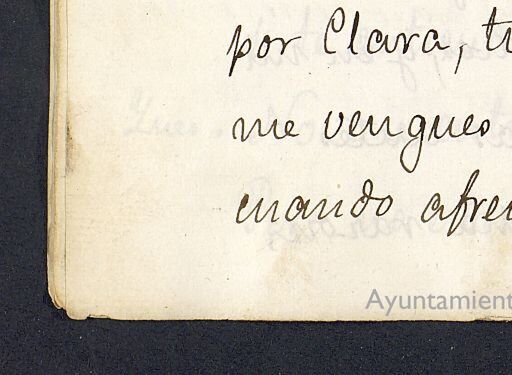 por Clara, tu
me vengues
cuando afre
Ayuntamient